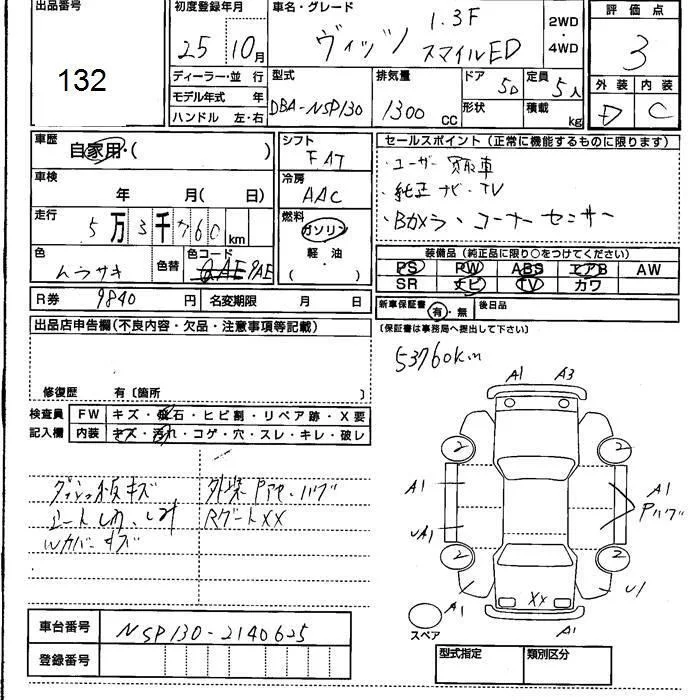 出品番号 初度登録年月 車名・グレード 評価点
132
25 10月 ヴィッツ 1.3F スマイルED 2WD・4WD 3
ディーラー・並行 型式 排気量 ドア 5D 定員 5人 外装 内装
モデル年式 年 形状 積載 kg
ハンドル 左・右 DBA-NSP130 1300 CC E C
車歴 自家用・( ) シフト FAT セールスポイント(正常に機能するものに限ります)
・ユーザー買取車
車検 年 月( 日) 冷房 AAC ・純正ナビ・TV
走行 5万3千760km 燃料 ガソリン ・Bカメラ・コーナーセンサー
軽油 ( ) 装備品(純正品に限り○をつけてください)
色 ムラサキ 色替 色コード 9AE PS PW ABS エアB AW
SR ナビ TV カワ
R券 9840円 名変期限 月 日 新車保証書 有・無 後日品
(保証書は事務局へ提出して下さい)
出品店申告欄(不良内容・欠品・注意事項等記載)
53760km
修復歴 有〔箇所 〕
検査員 FW キズ・飛石・ヒビ割・リペア跡・X要
記入欄 内装 キズ・汚れ・コゲ・穴・スレ・キレ・破レ
A1 A3
2 2
A1 A1
UA1 Pハゲ
2 2
A1 XX U1
A1
スペア
ダッシュ板キズ 外装
シートしわ、しみ RゲートXX
Wカバーキズ
車台番号 NSP130-2140625
登録番号
型式指定 類別区分